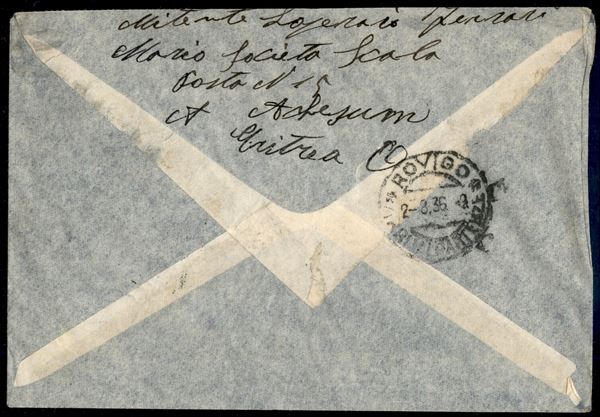 Mitente Legerario Ferrari
Mario Societa Scala
Posta N 15
A Adegum
Eritrea
ROVIGO
2-8.36